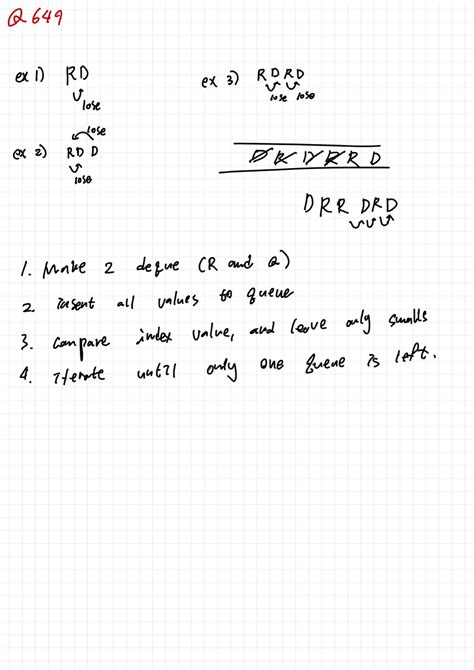 Q 649
ex 1) RD
lose
ex 2) RD D
lose
lose
ex 3) RDRD
lose lose
D R D R R D
D R R D R D
1. Make 2 deque (R and Q)
2. Insert all values to queue
3. Compare index value, and leave only smalls
4. Iterate until only one queue is left.